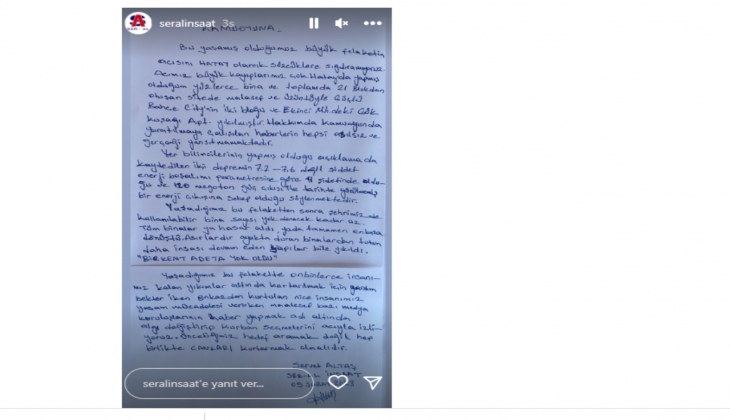 seralinsaat 3s
KAMUOYUNA
Bu yaşamış olduğumuz büyük felaketin
acısını HATAY olarak sözcüklere sığdıramıyoruz
Acımız büyük kayıplarımız çok Hatay'da yapmış
olduğum yüzlerce bina ve toplamda 21 Bloktan
oluşan sitede malesef ve üzüntüyle Güçlü
Bahçe City'nin iki bloğu ve Ekinci Mh.deki Gök
kuşağı Apt. yıkılmıştır. Hakkımda kamuoyunda
yaratılmaya çalışılan haberlerin hepsi asılsız ve
gerçeği yansıtmamaktadır.
Yer bilimcilerinin yapmış olduğu açıklamada
kaydedilen iki depremin 7.7 - 7.6 değil şiddet
enerji boşalımı parametresine göre şiddetinde
ve megaton güç çıkışı ile tarihte görülmemiş
bir enerji çıkışına sebep olduğu söylenmektedir.
Yaşadığımız bu felaketten sonra şehrimizde
kullanılabilir bina sayısı yok denecek kadar az
Tüm binalar ya hasar aldı, yada tamamen enkaza
dönüştü. Asırlardır ayakta duran binalardan tutun
daha inşası devam eden yapılar bile yıkıldı.
"BİR KENT ADETA YOK OLDU"
Yaşadığımız bu felakette onbinlerce insanı-
mız kalan yıkımlar altında kurtarmak için yardım
bekler iken enkazdan kurtulan nice insanımız
yaşam mücadelesi verirken maalesef bazı medya
kuruluşlarının haber yapmak adı altında
algı değiştirip kurban seçmelerini acıyla izli-
yoruz. Önceliğimiz hedef aramak değil hep
birlikte CANLARI kurtarmak olmalıdır.
Servet ALTAŞ
SERAL İNŞAAT
seralinsaat'e yanıt ver...